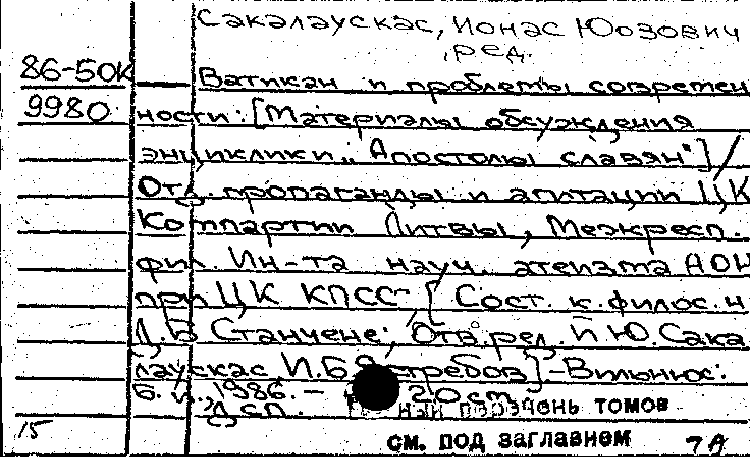 Сакалаускас, Ионас Юозович
, ред.
86-50к Ватикан и проблемы современ
9980 ности: [Материалы обсуждения
энциклики „Апостолы славян"] /
Отд. пропаганды и агитации ЦК
Компартии Литвы, Межресп.
фил. Ин-та науч. атеизма АОН
при ЦК КПСС; [Сост. к. филос. н
Д.В Станчене; Отв. ред. И Ю. Сака
лаускас И.Б. Ястребов]. - Вильнюс:
Б. и., 1986. - 20 см
Дсп. перечень томов
15 см. под заглавием 7А